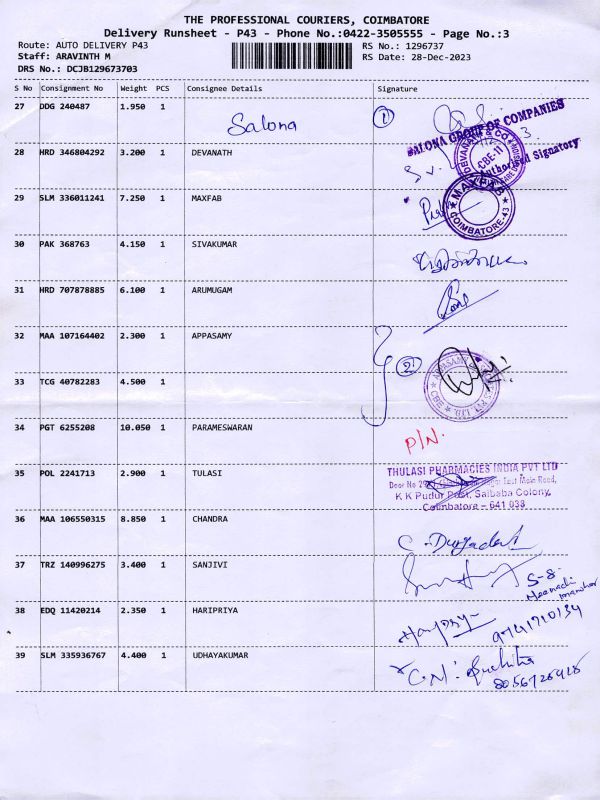 THE PROFESSIONAL COURIERS, COIMBATORE
Delivery Runsheet - P43 - Phone No.:0422-3505555 - Page No.:3
Route: AUTO DELIVERY P43 RS No.: 1296737
Staff: ARAVINTH M RS Date: 28-Dec-2023
DRS No.: DCJB129673703
S No Consignment No Weight PCS Consignee Details Signature
27 DDG 240487 1.950 1 Salona 1
SALONA GROUP OF COMPANIES
Authorised Signatory
28 HRD 346804292 3.200 1 DEVANATH
29 SLM 336011241 7.250 1 MAXFAB
COIMBATORE-43
30 PAK 368763 4.150 1 SIVAKUMAR
31 HRD 707878885 6.100 1 ARUMUGAM
32 MAA 107164402 2.300 1 APPASAMY
2
33 TCG 40782283 4.500 1
34 PGT 6255208 10.050 1 PARAMESWARAN P/N.
35 POL 2241713 2.900 1 TULASI
THULASI PHARMACIES INDIA PVT LTD
Door No East Main Road,
K K Pudur Post, Saibaba Colony,
Coimbatore - 641 038
36 MAA 106550315 8.850 1 CHANDRA
37 TRZ 140996275 3.400 1 SANJIVI
S-8-
38 EDQ 11420214 2.350 1 HARIPRIYA
39 SLM 335936767 4.400 1 UDHAYAKUMAR